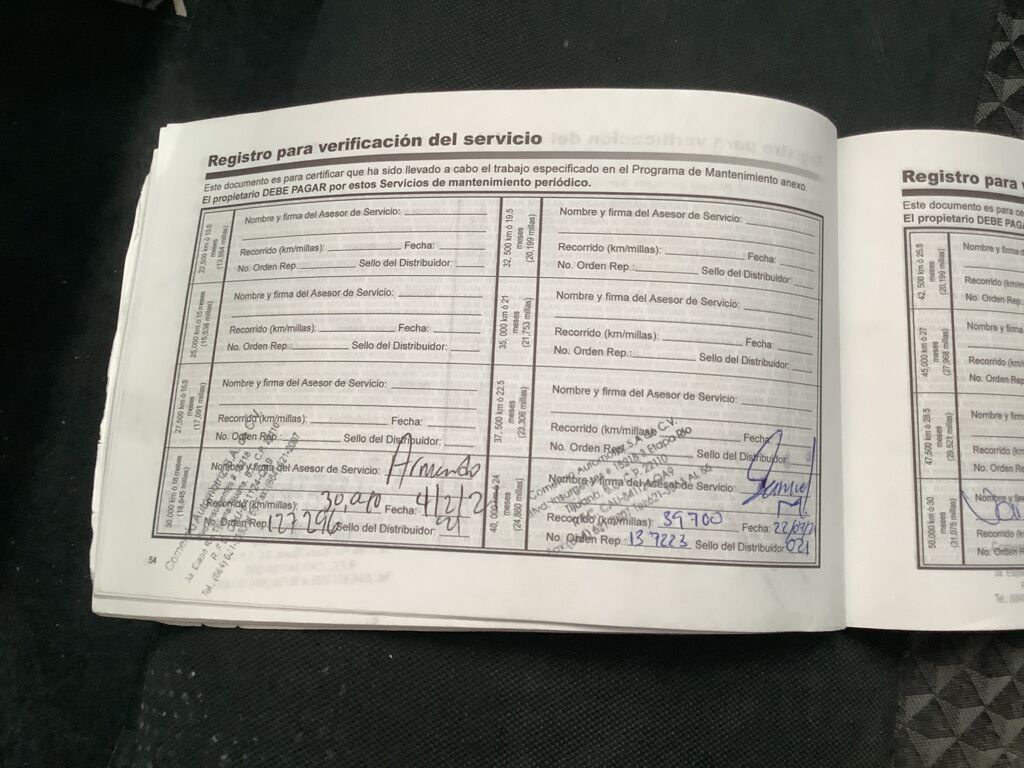 Registro para verificación del servicio
Este documento es para certificar que ha sido llevado a cabo el trabajo especificado en el Programa de Mantenimiento anexo.
El propietario DEBE PAGAR por estos Servicios de mantenimiento periódico.
22,500 km ó 13.5
meses
(13,984 millas)
Nombre y firma del Asesor de Servicio:
Recorrido (km/millas): Fecha:
No. Orden Rep.: Sello del Distribuidor:
25,000 km ó 15 meses
(15,538 millas)
Nombre y firma del Asesor de Servicio:
Recorrido (km/millas): Fecha:
No. Orden Rep.: Sello del Distribuidor:
27,500 km ó 16.5
meses
(17,091 millas)
Nombre y firma del Asesor de Servicio:
Recorrido (km/millas): Fecha:
No. Orden Rep.: Sello del Distribuidor:
30,000 km ó 18 meses
(18,645 millas)
Nombre y firma del Asesor de Servicio: Armando
Recorrido (km/millas): Fecha: 4/2/2
No. Orden Rep. 127296 Sello del Distribuidor: 21
54
32, 500 km ó 19.5
meses
(20,199 millas)
Nombre y firma del Asesor de Servicio:
Recorrido (km/millas): Fecha:
No. Orden Rep.: Sello del Distribuidor:
35, 000 km ó 21
meses
(21,753 millas)
Nombre y firma del Asesor de Servicio:
Recorrido (km/millas): Fecha:
No. Orden Rep.: Sello del Distribuidor:
37, 500 km ó 22.5
meses
(23,306 millas)
Nombre y firma del Asesor de Servicio:
Recorrido (km/millas): Fecha:
No. Orden Rep. Sello del Distribuidor:
40, 000 km ó 24
meses
(24,860 millas)
Nombre y firma del Asesor de Servicio:
Recorrido (km/millas): 39700 Fecha:
No. Orden Rep.: 137223 Sello del Distribuidor 021
Registro para
Este documento es para ce
El propietario DEBE PAGA
42, 500 km ó 25.5
meses
(20,199 millas)
Nombre y firma d
Recorrido (km/m
No. Orden Rep.
45,000 km ó 27
meses
(27,968 millas)
Nombre y firma
Recorrido (km/
No. Orden Rep
47,500 km ó 28.5
meses
(29,521 millas)
Nombre y firm
Recorrido (km
No. Orden Re
50,000 km ó 30
meses
(31,075 millas)
Nombre y fir
Recorrido (k
No. Orden R